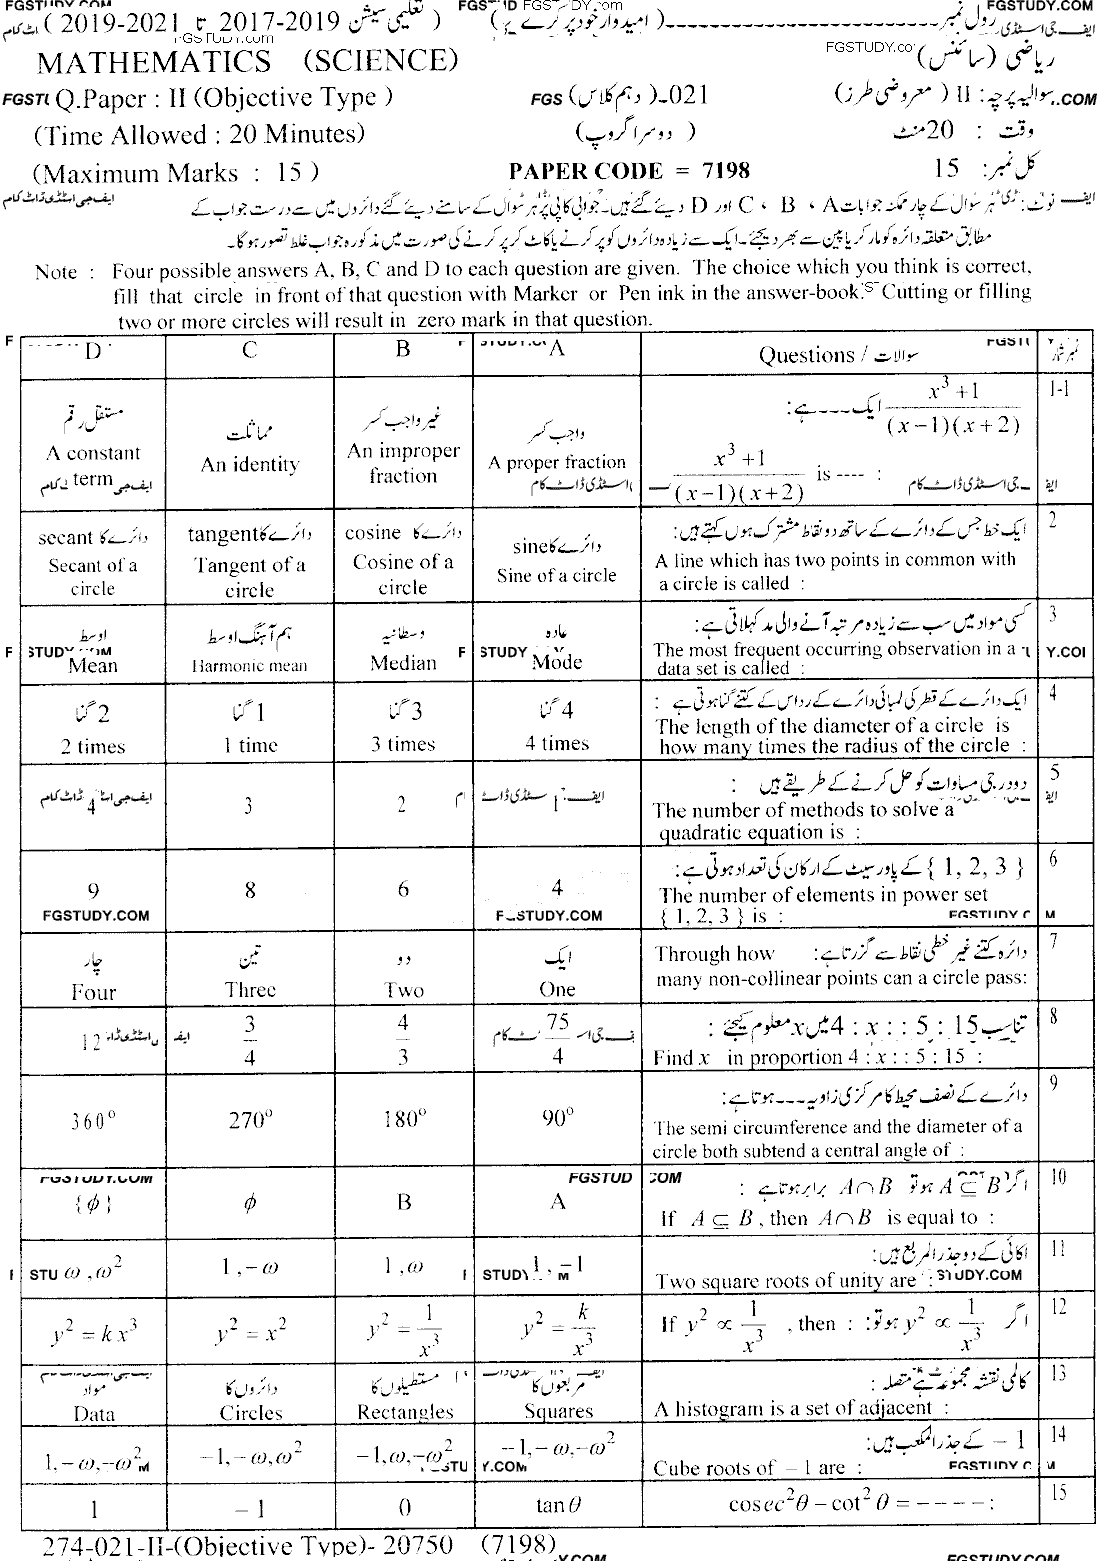 FGSTUDY.COM
رول نمبر ---------------- (امیدوار خود پر کرے) (تعلیمی سیشن 2017-2019 تا 2019-2021)
MATHEMATICS (SCIENCE) ریاضی (سائنس)
Q.Paper : II (Objective Type ) 021-(دہم کلاس) سوالیہ پرچہ : II (معروضی طرز)
(Time Allowed : 20 Minutes) (دوسرا گروپ) وقت : 20 منٹ
(Maximum Marks : 15 ) PAPER CODE = 7198 کل نمبر : 15
نوٹ : ہر سوال کے چار ممکنہ جوابات A ، B ، C اور D دیئے گئے ہیں۔ جوابی کاپی پر ہر سوال کے سامنے دیئے گئے دائروں میں سے درست جواب کے
مطابق متعلقہ دائرہ کو مارکر یا پین سے بھر دیجئے۔ ایک سے زیادہ دائروں کو پر کرنے یا کاٹ کر پر کرنے کی صورت میں مذکورہ جواب غلط تصور ہو گا۔
Note : Four possible answers A, B, C and D to each question are given. The choice which you think is correct,
fill that circle in front of that question with Marker or Pen ink in the answer-book. Cutting or filling
two or more circles will result in zero mark in that question.
D C B A Questions / سوالات نمبر شمار
1-1
(x³+1)/((x−1)(x+2)) ایک ---- ہے :
(x³+1)/((x−1)(x+2)) is ---- :
واجب کسر
A proper fraction
غیر واجب کسر
An improper
fraction
مماثلت
An identity
مستقل رقم
A constant
term
2
ایک خط جس کے دائرے کے ساتھ دو نقاط مشترک ہوں کہتے ہیں :
A line which has two points in common with
a circle is called :
دائرے کا sine
Sine of a circle
دائرے کا cosine
Cosine of a
circle
دائرے کا tangent
Tangent of a
circle
دائرے کا secant
Secant of a
circle
3
کسی مواد میں سب سے زیادہ مرتبہ آنے والی مد کہلاتی ہے :
The most frequent occurring observation in a
data set is called :
عادہ
Mode
وسطانیہ
Median
ہم آہنگ اوسط
Harmonic mean
اوسط
Mean
4
ایک دائرے کے قطر کی لمبائی دائرے کے رداس کے کتنے گنا ہوتی ہے :
The length of the diameter of a circle is
how many times the radius of the circle :
4 گنا
4 times
3 گنا
3 times
1 گنا
1 time
2 گنا
2 times
5
دو درجی مساوات کو حل کرنے کے طریقے ہیں :
The number of methods to solve a
quadratic equation is :
1
2
3
4
6
{ 1, 2, 3 } کے پاور سیٹ کے ارکان کی تعداد ہوتی ہے :
The number of elements in power set
{ 1, 2, 3 } is :
4
6
8
9
7
دائرہ کتنے غیر خطی نقاط سے گزرتا ہے : Through how
many non-collinear points can a circle pass:
ایک
One
دو
Two
تین
Three
چار
Four
8
تناسب 4 : x : : 5 : 15 میں x معلوم کیجئے :
Find x in proportion 4 : x : : 5 : 15 :
75/4
4/3
3/4
12
9
دائرے کے نصف محیط کا مرکزی زاویہ ---- ہوتا ہے :
The semi circumference and the diameter of a
circle both subtend a central angle of :
90°
180°
270°
360°
10
اگر A ⊆ B ہو تو A∩B برابر ہوتا ہے :
If A ⊆ B , then A∩B is equal to :
A
B
φ
{φ}
11
اکائی کے دو جذر المربع ہیں :
Two square roots of unity are :
1, −1
1, ω
1, −ω
ω, ω²
12
اگر y² ∝ 1/x³ ہو تو :
If y² ∝ 1/x³ , then :
y² = k/x³
y² = 1/x³
y² = x²
y² = k x³
13
کالمی نقشہ مجموعہ ہے متصلہ :
A histogram is a set of adjacent :
مربعوں کا
Squares
مستطیلوں کا
Rectangles
دائروں کا
Circles
مواد
Data
14
−1 کے جذر المکعب ہیں :
Cube roots of −1 are :
−1, −ω, −ω²
−1, ω, −ω²
−1, −ω, ω²
1, −ω, −ω²
15
cosec²θ − cot²θ = ----- :
tan θ
0
−1
1
274-021-II-(Objective Type)- 20750 (7198)
FGSTUDY.COM